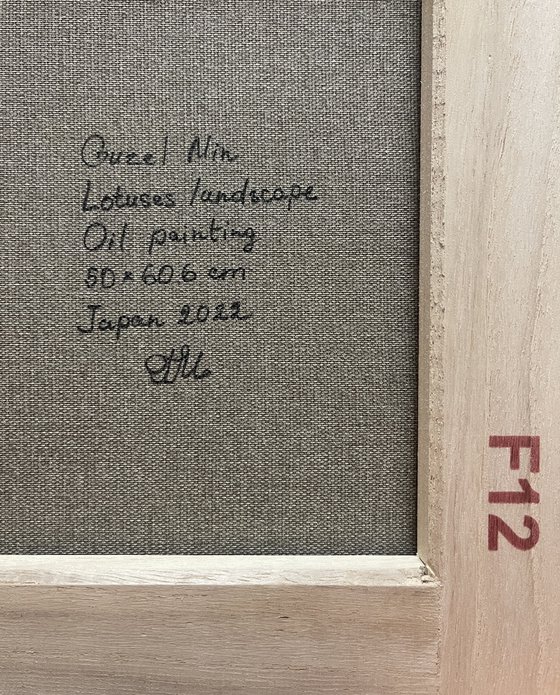 Guzel Min
Lotuses landscape
Oil painting
50×60.6 cm
Japan 2022
F12